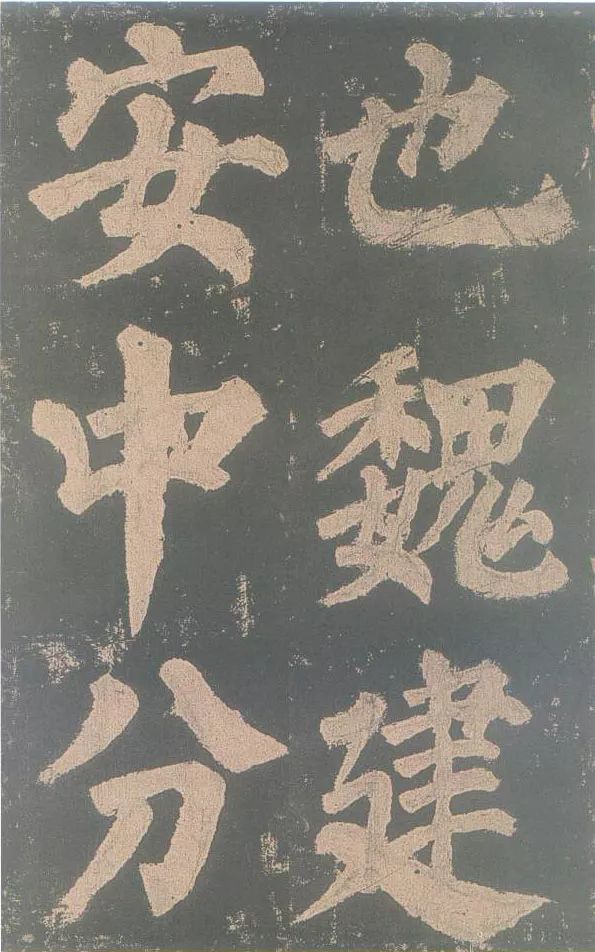 也魏建
安中分